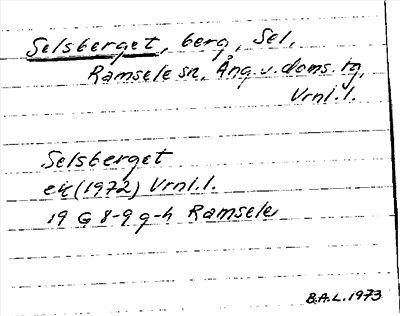 Selsberget, berg, Sel,
Ramsele sn, Ång. v. doms. tg,
Vrnl. l.
Selsberget
ek (1972) Vrnl. l.
19 G 8-9 g-h Ramsele
B.A.L. 1973